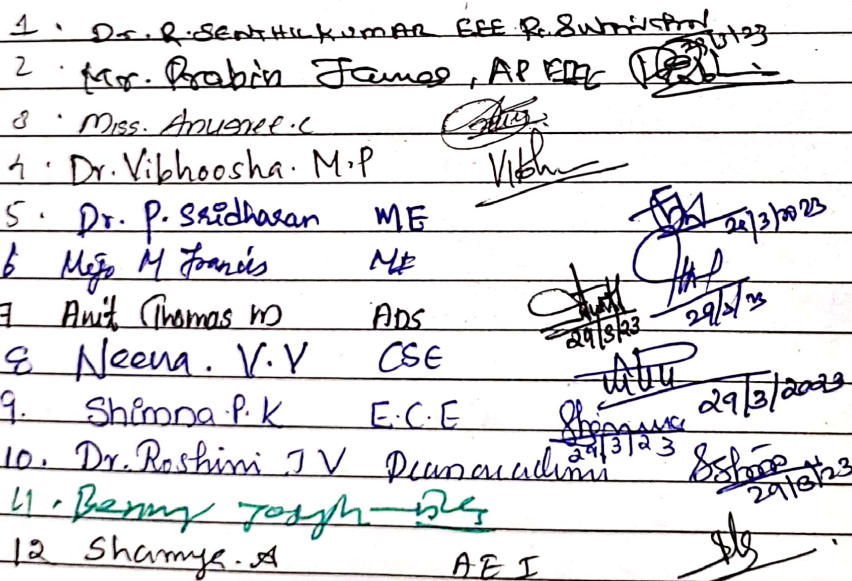 1. Dr. R. SENTHIL KUMAR EEE
29/3/23
2. Mr. Prabin James, AP EEE
3. Miss. Anusree.c
4. Dr. Vibhoosha. M.P Vibh
5. Dr. P. Sridharan ME 29/3/2023
6 Mejo M Francis ME 29/3/23
7 Anit Thomas M ADS 29/3/23
8 Neena. V.V CSE 29/3/2023
9. Shimna P.K E.C.E Shimna 29/3/23
10. Dr. Roshini T V 29/3/23
11. Benny Joseph
12 Shamya. A AEI